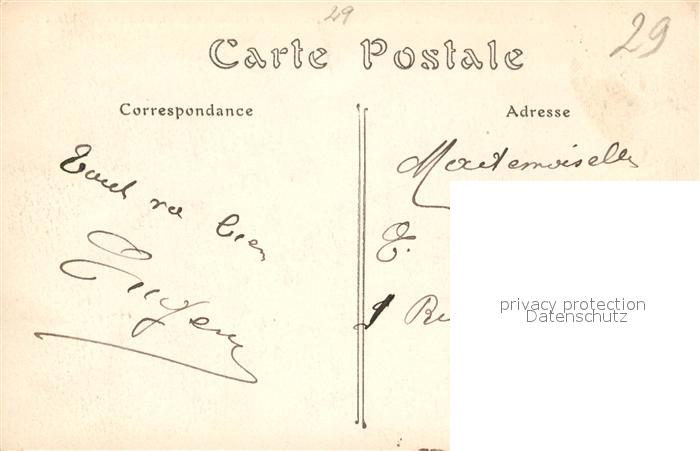 29
29
Carte Postale
Correspondance
Adresse
Tout va bien
Eugène
Mademoiselle
T.
1 Ru
privacy protection
Datenschutz